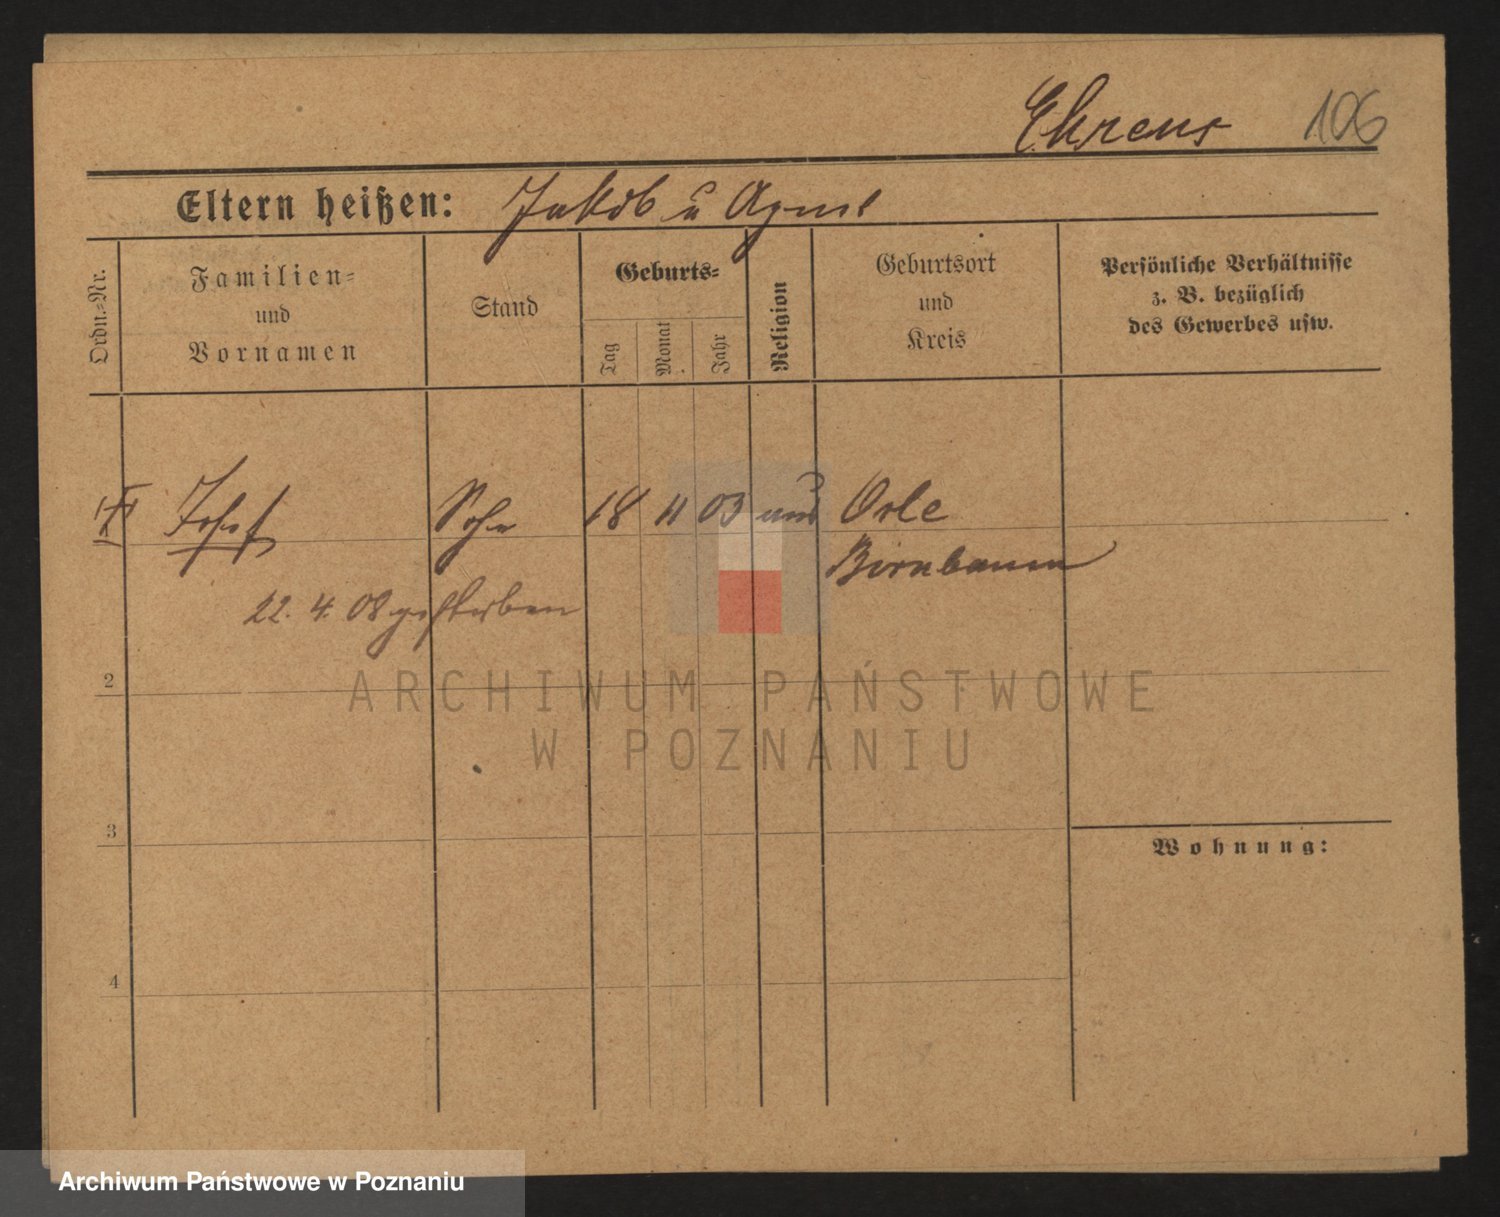 Ehrens 106
Eltern heißen: Jakob u Agnes
Ordn.-Nr.
Familien-
und
Vornamen
Stand
Geburts-
Tag
Monat
Jahr
Religion
Geburtsort
und
Kreis
Persönliche Verhältnisse
z. B. bezüglich
des Gewerbes usw.
Josef Sohn 18 11 03 Orle
Birnbaum
22. 4. 08 gestorben
2
3
4
Wohnung:
ARCHIWUM PAŃSTWOWE
W POZNANIU
Archiwum Państwowe w Poznaniu